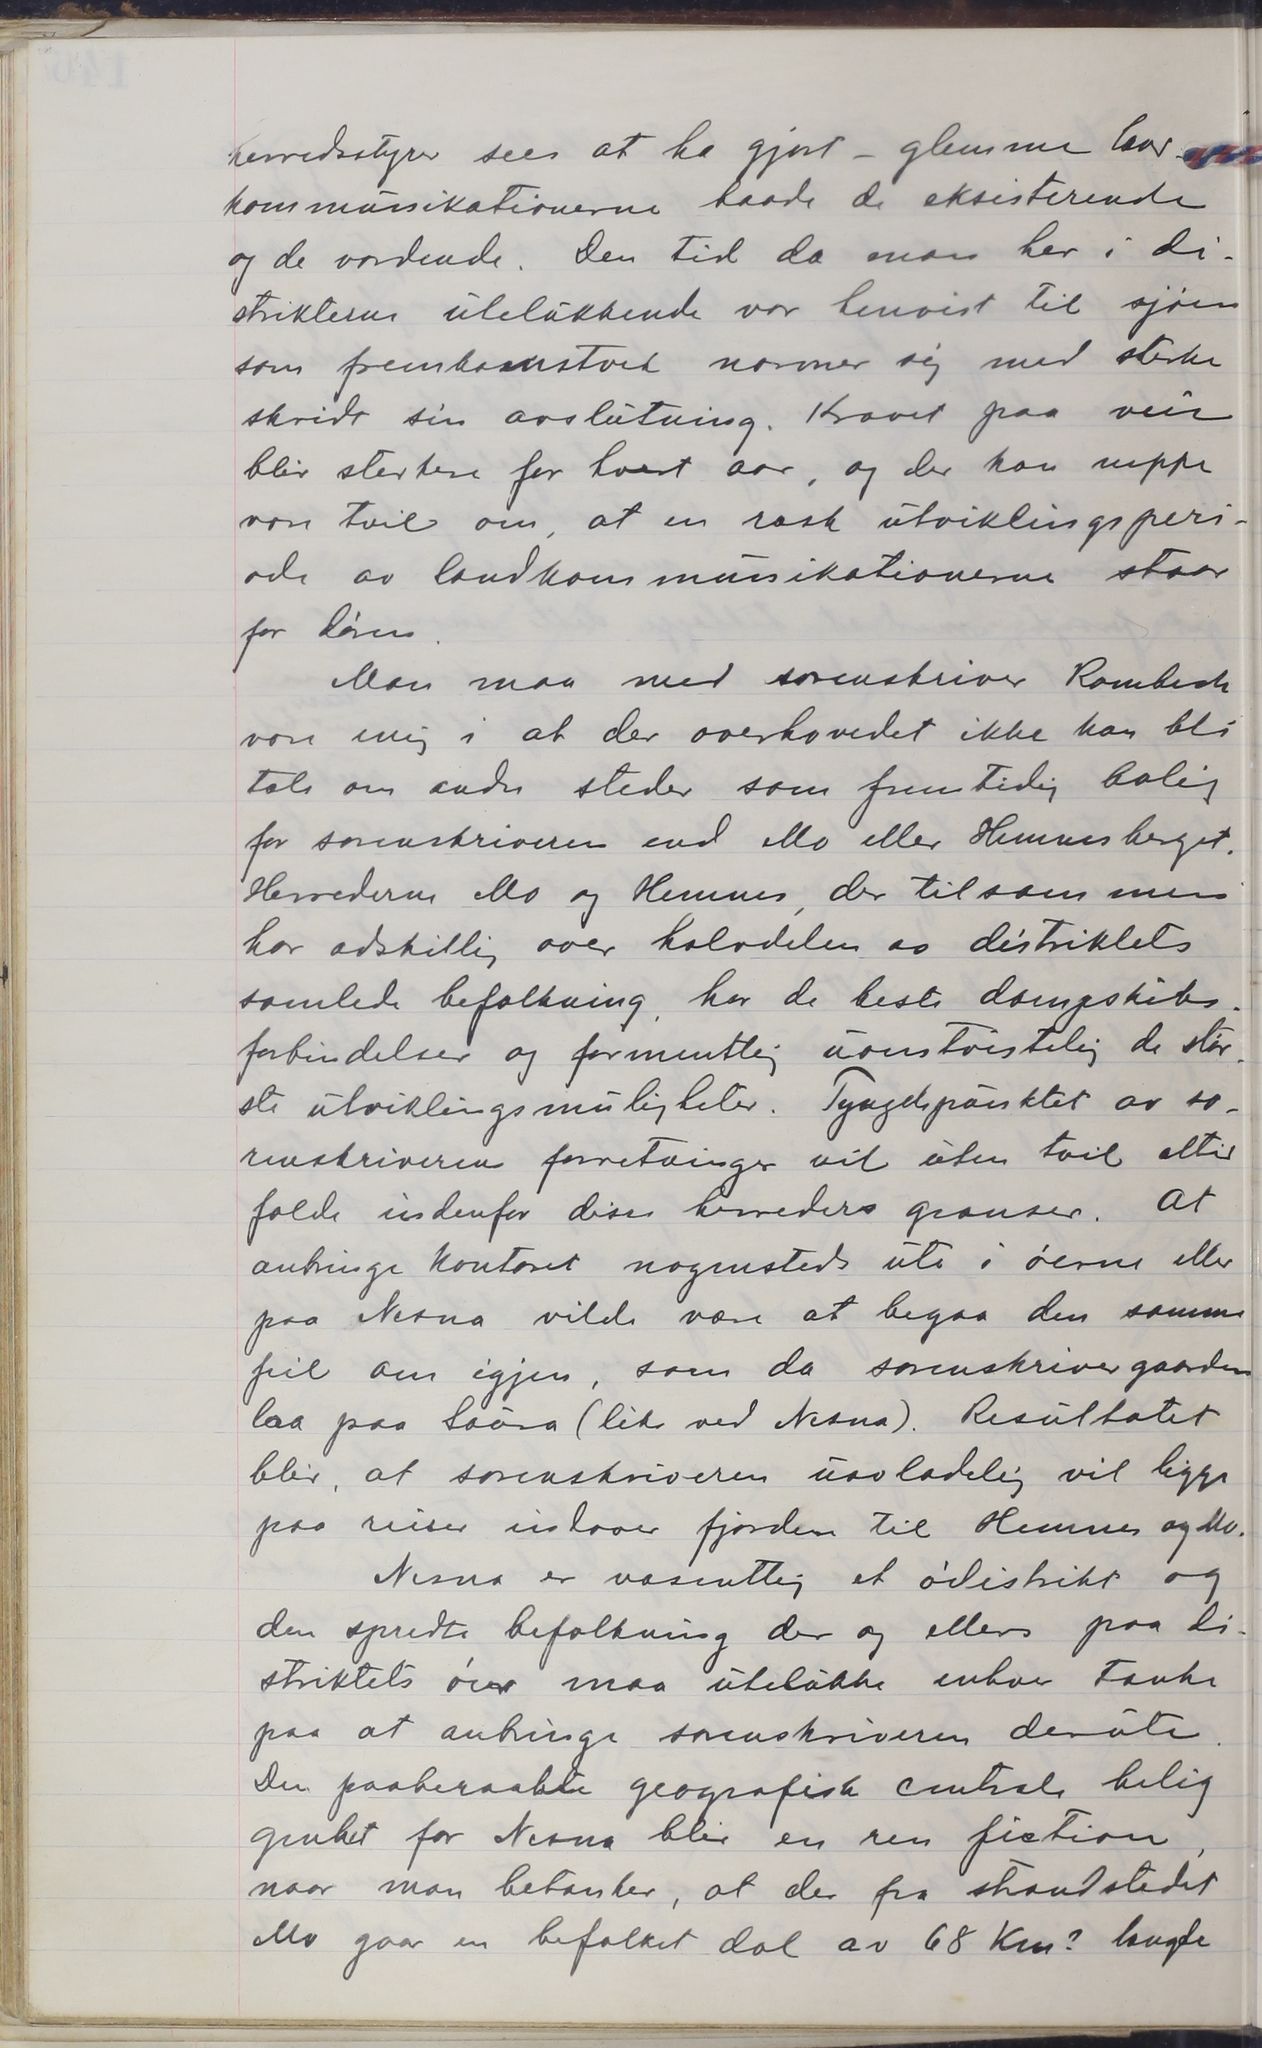 herredsstyrer sees at ha gjort - glemme land-
kommunikationerne baade de eksisterende
og de vordende. Den tid da man her i di-
strikterne utelukkende var henvist til sjøen
som fremkomstvei nærmer sig med sterke
skridt sin avslutning. Kravet paa veie
blir sterkere for hvert aar, og der kan neppe
være tvil om, at en rask utviklingsperi-
ode av landkommunikationerne staar
for døren.
Man maa med sorenskriver Rambech
være enig i at der overhovedet ikke kan bli
tale om andre steder som fremtidig bolig
for sorenskriveren end Mo eller Hemnesberget.
Herrederne Mo og Hemnes, der tilsammen
har adskillig over halvdelen av distriktets
samlede befolkning, har de beste dampskibs-
forbindelser og formentlig uomtvistelig de stør-
ste utviklingsmuligheter. Tyngdepunktet av so-
renskriverens forretninger vil uten tvil altid
falde indenfor disse herreders grænser. At
anbringe kontoret nogensteds ute i øerne eller
paa Nesna vilde være at begaa den samme
feil om igjen, som da sorenskrivergaarden
laa paa Saura (like ved Nesna). Resultatet
blir, at sorenskriveren uavladelig vil ligge
paa reiser indover fjorden til Hemnes og Mo.
Nesna er væsentlig et ødistrikt og
den spredte befolkning der og ellers paa di-
striktets øer maa utelukke enhver tanke
paa at anbringe sorenskriveren derute.
Den paaberaabte geografisk centrale belig
genhet for Nesna blir en ren fiction,
naar man betænker, at der fra strandstedet
Mo gaar en befolket dal av 68 Km? længde